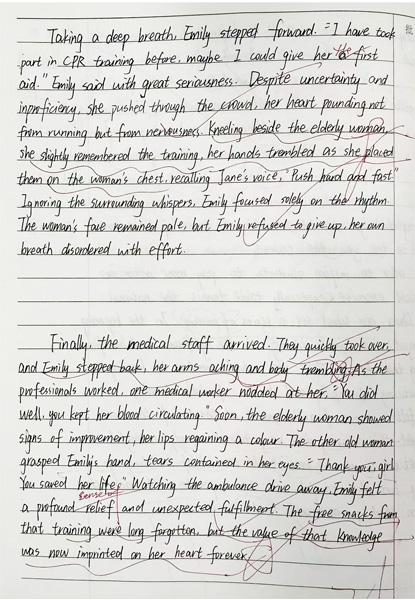 Taking a deep breath, Emily stepped forward. "I have took
part in CPR training before, maybe I could give her the first
aid." Emily said with great seriousness. Despite uncertainty and
inproficiency, she pushed through the crowd, her heart pounding not
from running but from nervousness. Kneeling beside the elderly woman,
she slightly remembered the training, her hands trembled as she placed
them on the woman's chest, recalling Jane's voice, "Push hard and fast."
Ignoring the surrounding whispers, Emily focused solely on the rhythm.
The woman's face remained pale, but Emily refused to give up, her own
breath disordered with effort.
Finally, the medical staff arrived. They quickly took over,
and Emily stepped back, her arms aching and body trembling. As the
professionals worked, one medical worker nodded at her: "You did
well, you kept her blood circulating." Soon, the elderly woman showed
signs of improvement, her lips regaining a colour. The other old woman
grasped Emily's hand, tears contained in her eyes: "Thank you, girl
You saved her life." Watching the ambulance drive away, Emily felt
sense of
a profound relief and unexpected fulfillment. The free snacks from
that training were long forgotten, but the value of that knowledge
was now imprinted on her heart forever.